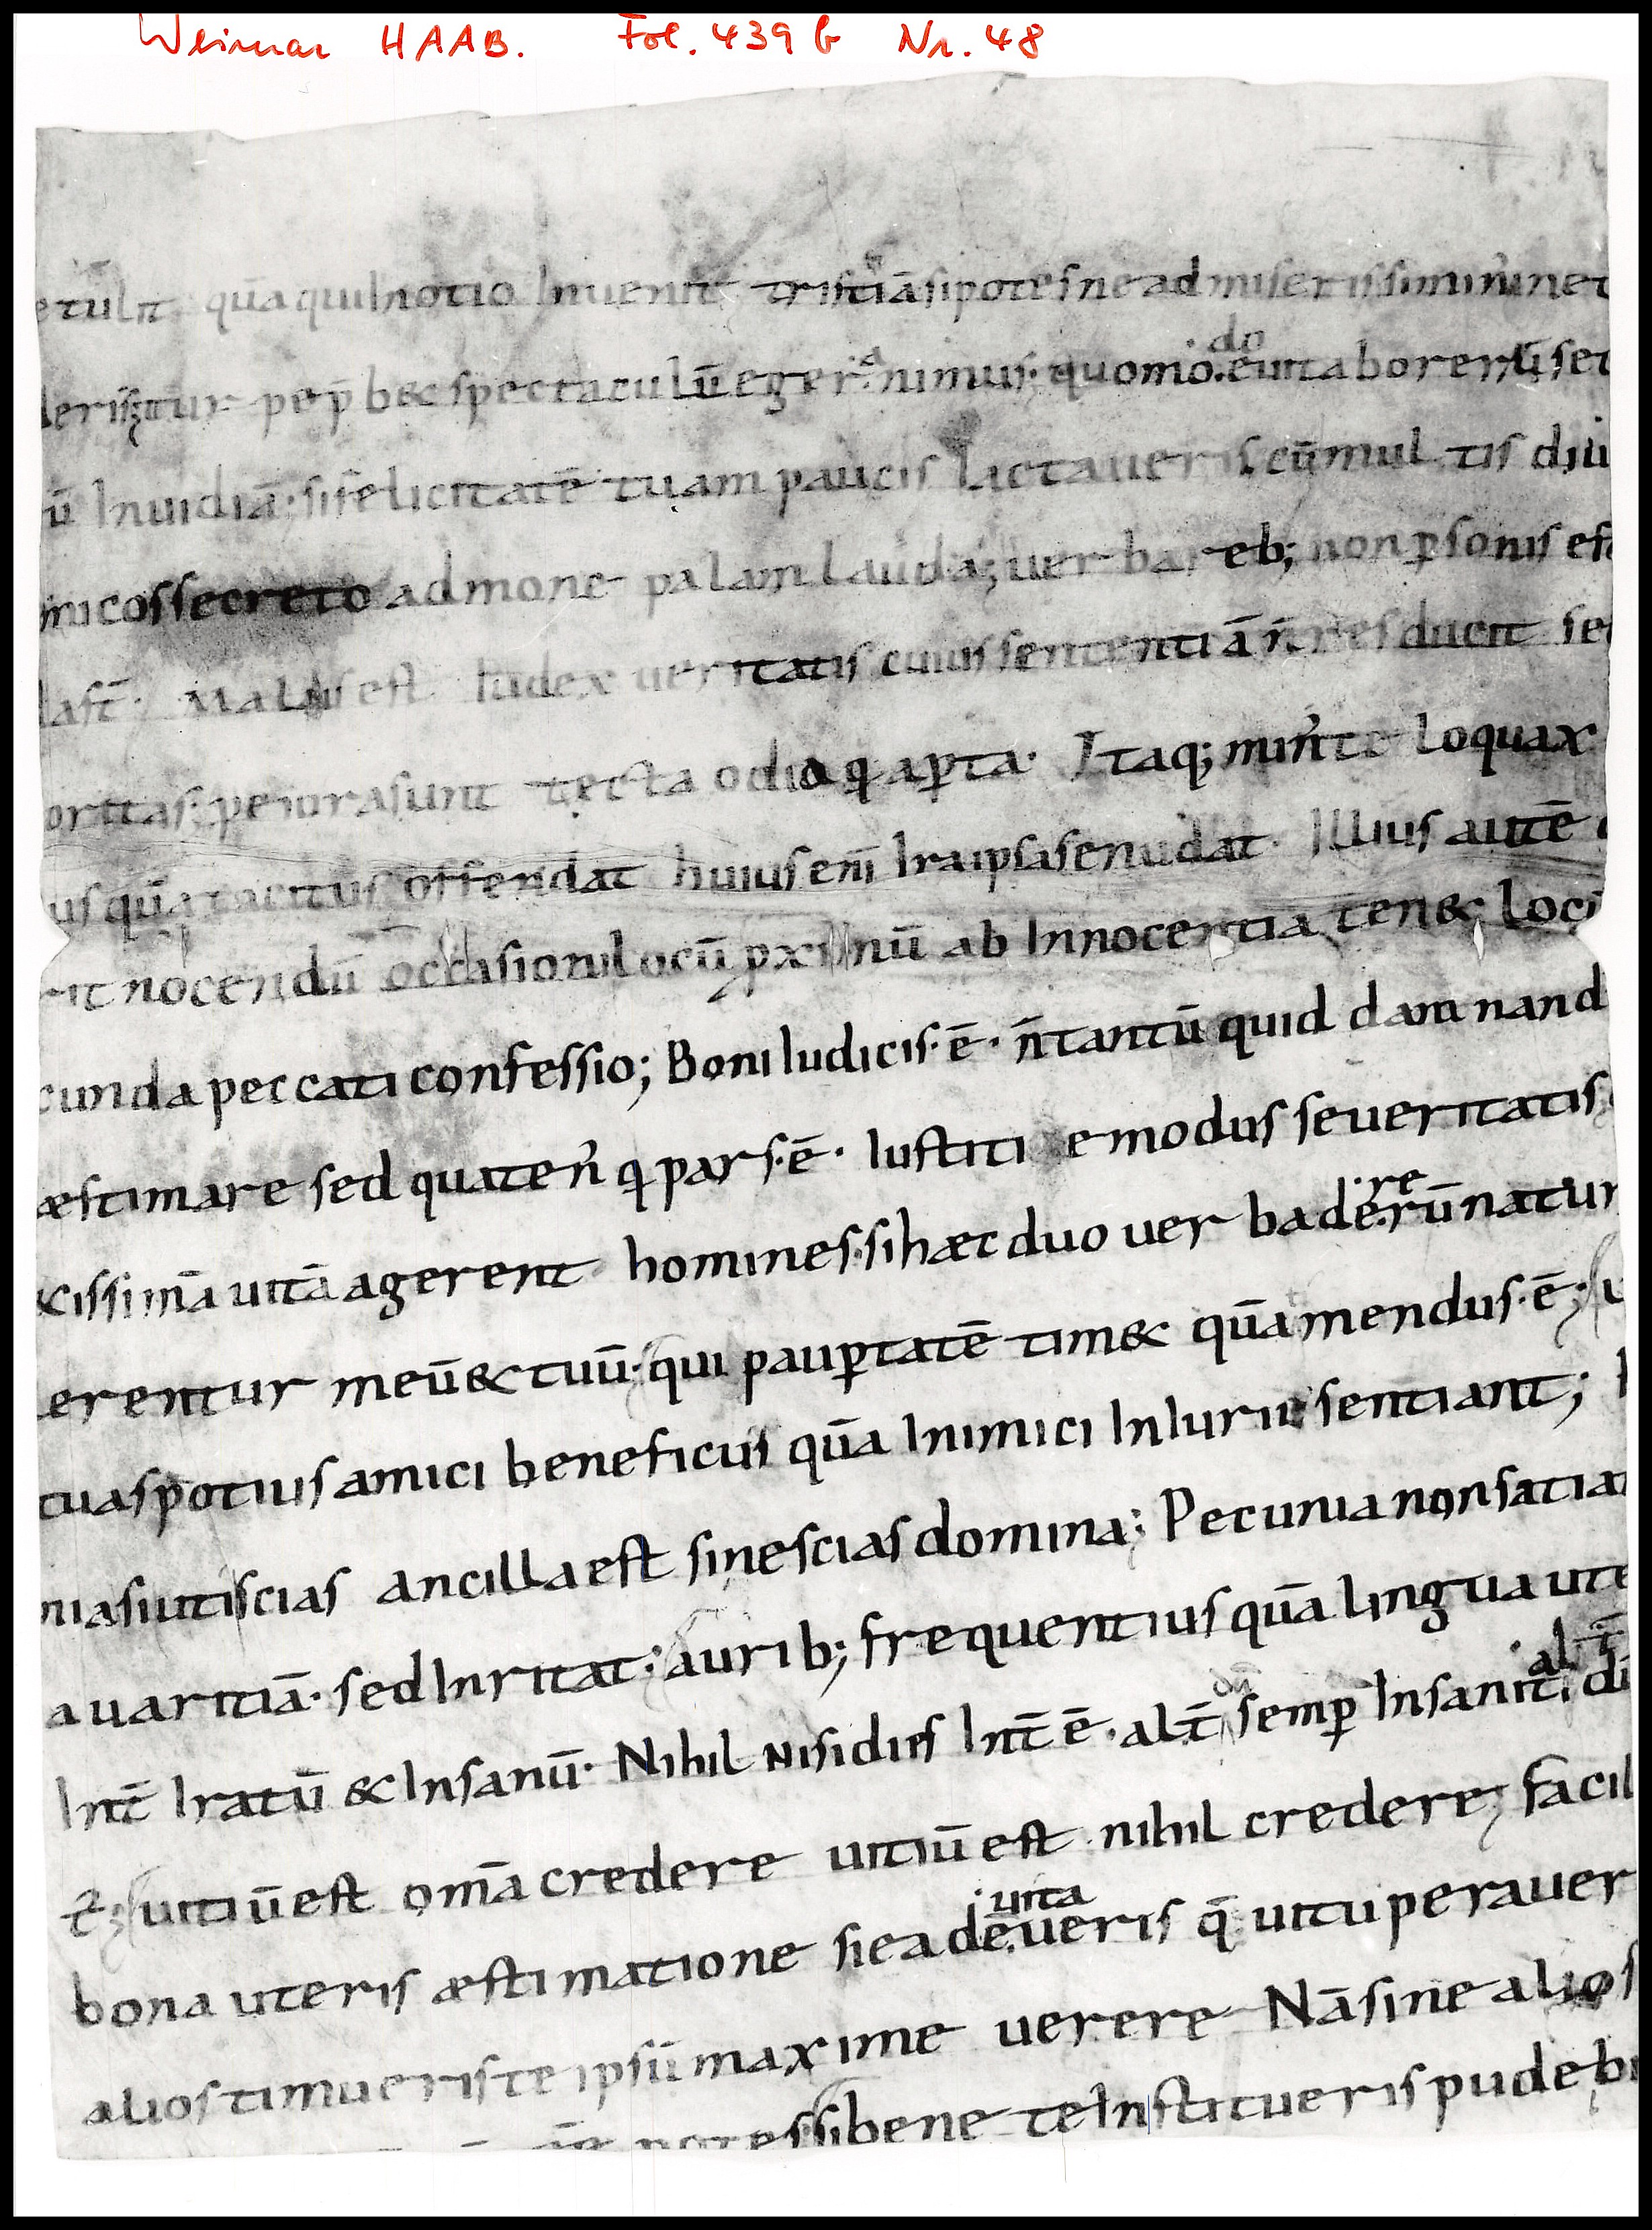 Weimar HAAB. Fol. 439 b Nr. 48
etulit quā quilnotio Inuenit tristitiāsipotesneadmiserissimim̄ inet
pep̄ b&c spectaculū eger .a nimus. quomo.do
ū Inuidiā. sifelicitatē tuam paucis Iactaueris. cūmul tis diui
micossecreto admone palam lauda; uer bareb; non ꝑsonis est
last̄. Malus est Iudex ueritatis cuius sententiā n̄ res ducit sed
oritas; peiora sunt tecta odia q̄ aꝑta. Itaq; min' te loquax
us quā tacitus offendat huiusenī Iraipsasenudat. Illius autē
rit nocendū occasionē locū ꝓximū ab Innocentia ten&; loc
cunda peccati confessio; Boni Iudicis.ē. n̄tantū quid damnand
æstimare sed quaten' q pars.ē. Iustiti e modus seueritatis
cissimā uitā agerent homines. sihæc duo uer bade.rerū natur
erentur meū & tuū. qui pauꝑtatē tim& quā mendus.ē; u
tuas potius amici beneficus quā Inimici InIurii sentiant;
niasiutiscias ancilla est sinescias domina; Pecunia non satiat
auaritiā. sed Inritat; aurib; frequentius quā lingua ute
Int̄ Iratū & Insanū. Nihil nisi dies Int̄ ē. alt̄ semꝑ Insanit. di
uitiū est omā credere uitiū est nihil credere; facil
bona uteris æstimatione sieade.uita ueris q̄ uituperauer
alios timueris te ipsū maxime uerere Nā sine alios
potes sibene te Institueris pudebi